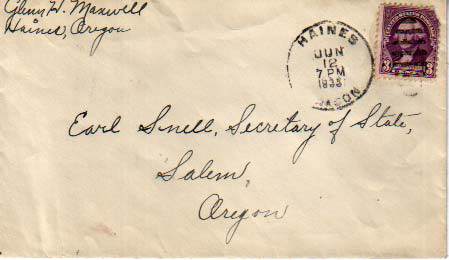 Glenn W. Maxwell
Haines, Oregon
HAINES
JUN
12
7 PM
OREGON
3 3
Earl Snell, Secretary of State,
Salem,
Oregon